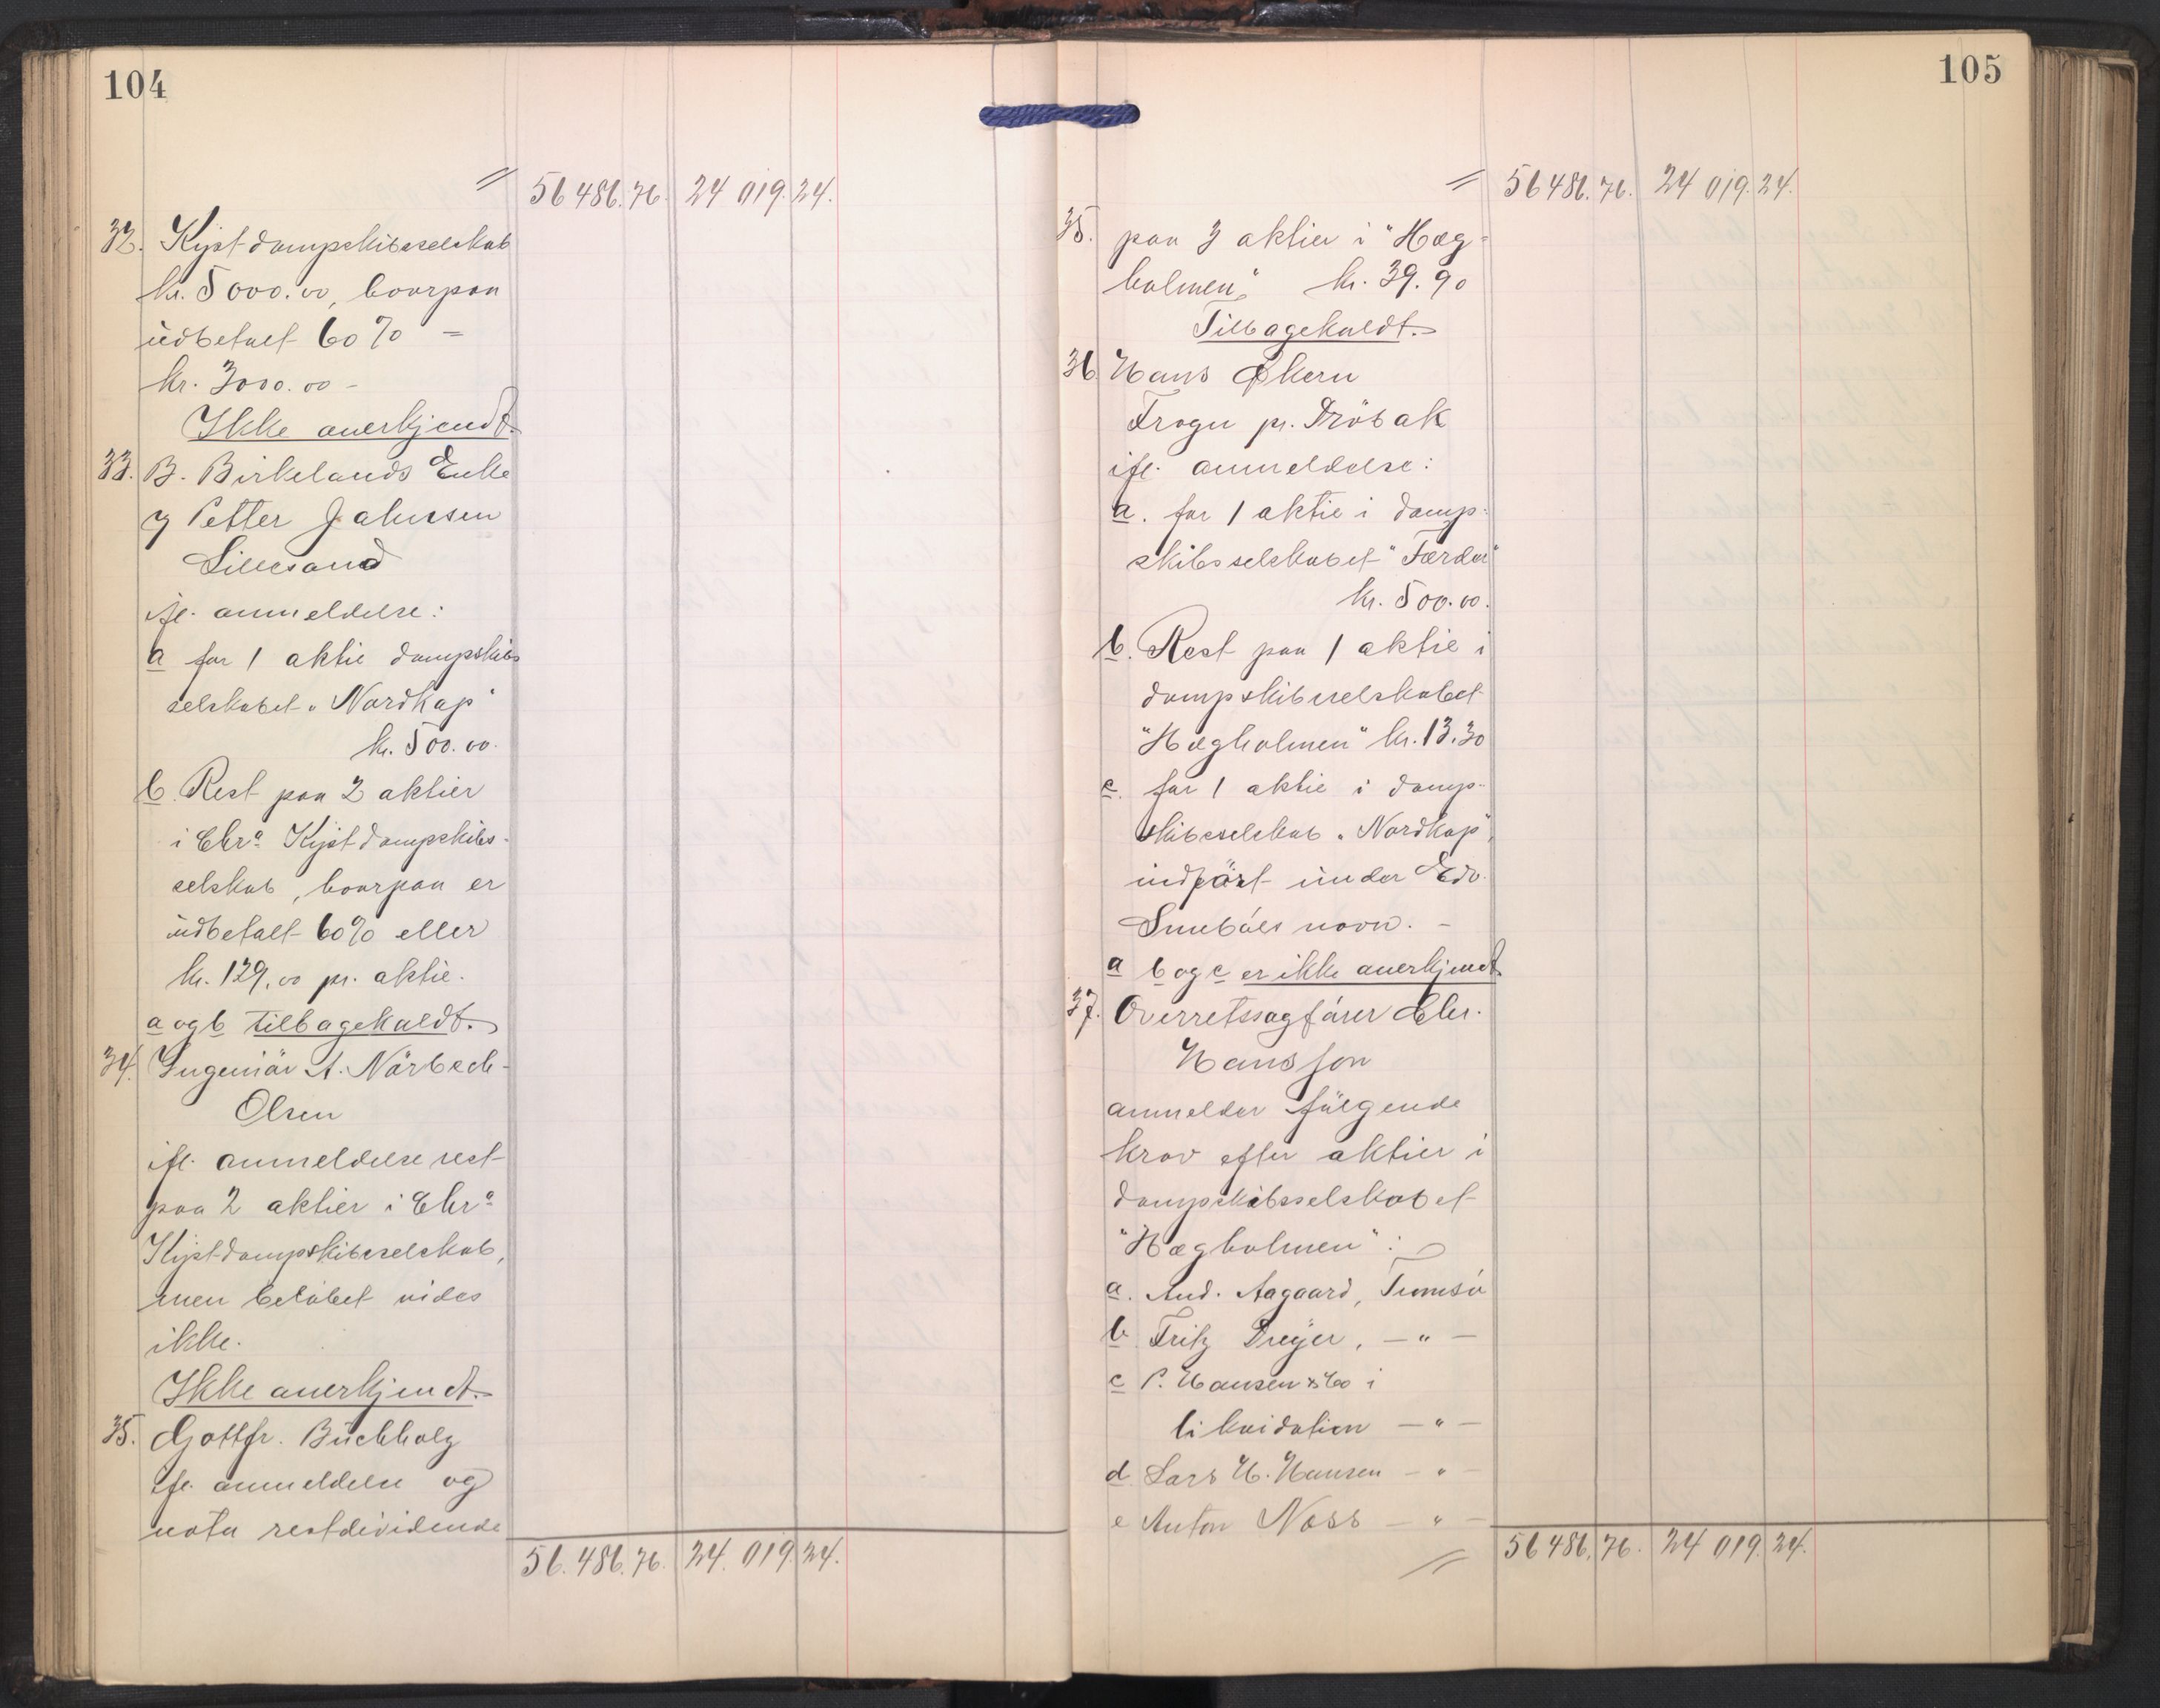 104
〃 56 486. 76. 24 019. 24.
32. Kyst dampskibsselskab
kr. 5000.00, hvorpaa
udbetalt 60% =
kr. 3000.00 -
Ikke anerkjendt.
33. B. Birkelands Enke
og Petter Jahnssen
Lillesand
ifl. anmeldelse:
a for 1 aktie dampskibs
selskabet „Nordkap"
kr. 500.00.
b. Rest paa 2 aktier
i Chr.a Kyst dampskibs-
selskab, hvorpaa er
udbetalt 60% eller
kr. 129,00 pr. aktie.
a og b tilbagekaldt.
34. Ingeniör A. Nörbech-
Olsen
ifl. anmeldelse rest
paa 2 aktier i Chr.a
Kystdampskibsselskab,
men belöbet vides
ikke.
Ikke anerkjendt.
35. Gottfr. Buchholz
ifl. anmeldelse og
nota restdividende
56. 486. 76. 24. 019. 24.
105
〃 56 486. 76. 24 019. 24.
35. paa 3 aktier i "Hæg-
holmen" kr. 39.90
Tilbagekaldt.
36. Hans Økern
Frogn pr. Dröbak
ifl. anmeldelse:
a. for 1 aktie i damp-
skibsselskabet "Færder"
kr. 500.00.
b. Rest paa 1 aktie i
dampskibsselskabet
"Hægholmen" kr. 13.30
c. for 1 aktie i damp-
skibsselskab „Nordkap",
indfört under Edv.
navn. -
a b og c er ikke anerkjendt.
37. Overretssagförer Chr.
Hansson
anmelder fölgende
krav efter aktier i
dampskibsselskabet
"Hægholmen":
a. And. Aagaard, Tromsö
b Fritz Dreyer, — „ —
c P. Hansen & Co i
likvidation — „ —
d Lars H. Hansen — „ —
e Anton Noss — „ —
〃 56 486. 76. 24 019. 24.